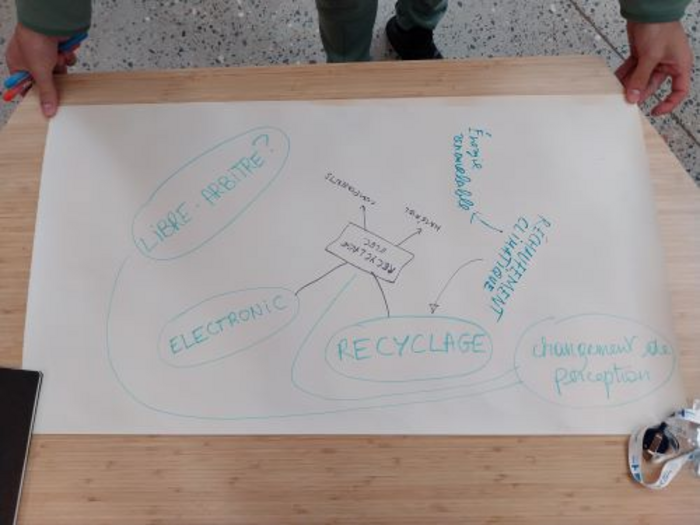 LIBRE-ARBITRE?
Énergie
renouvelable
COMPONENTS
MATERIAL
RÉCHAUFFEMENT
CLIMATIQUE
RECYCLAGE
ELEC
ELECTRONIC
RECYCLAGE
changement de
perception